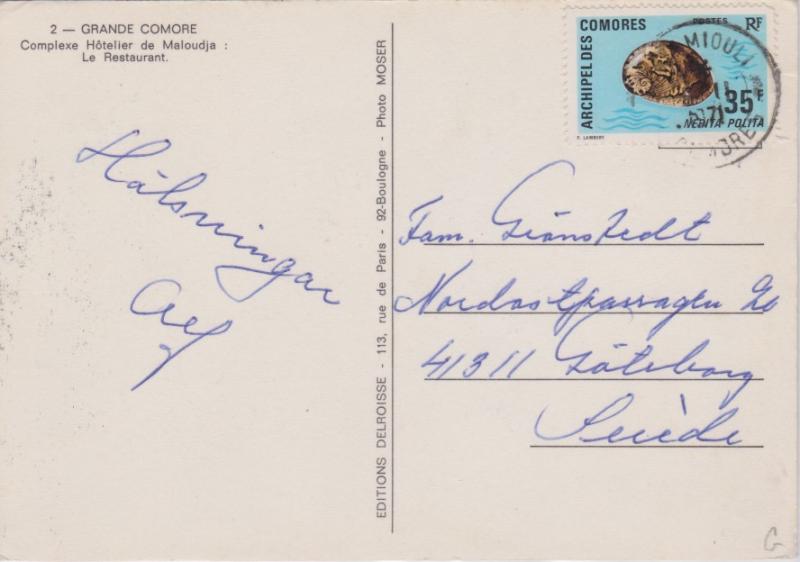 2 — GRANDE COMORE
Complexe Hôtelier de Maloudja :
Le Restaurant.
Hälsningar
EDITIONS DELROISSE - 113, rue de Paris - 92-Boulogne - Photo MOSER
ARCHIPEL DES COMORES
POSTES RF
35F
NERITA POLITA
P. LAMBERT
Fam. Grönstedt
Nordostpassagen
41311 Göteborg
Suède
G